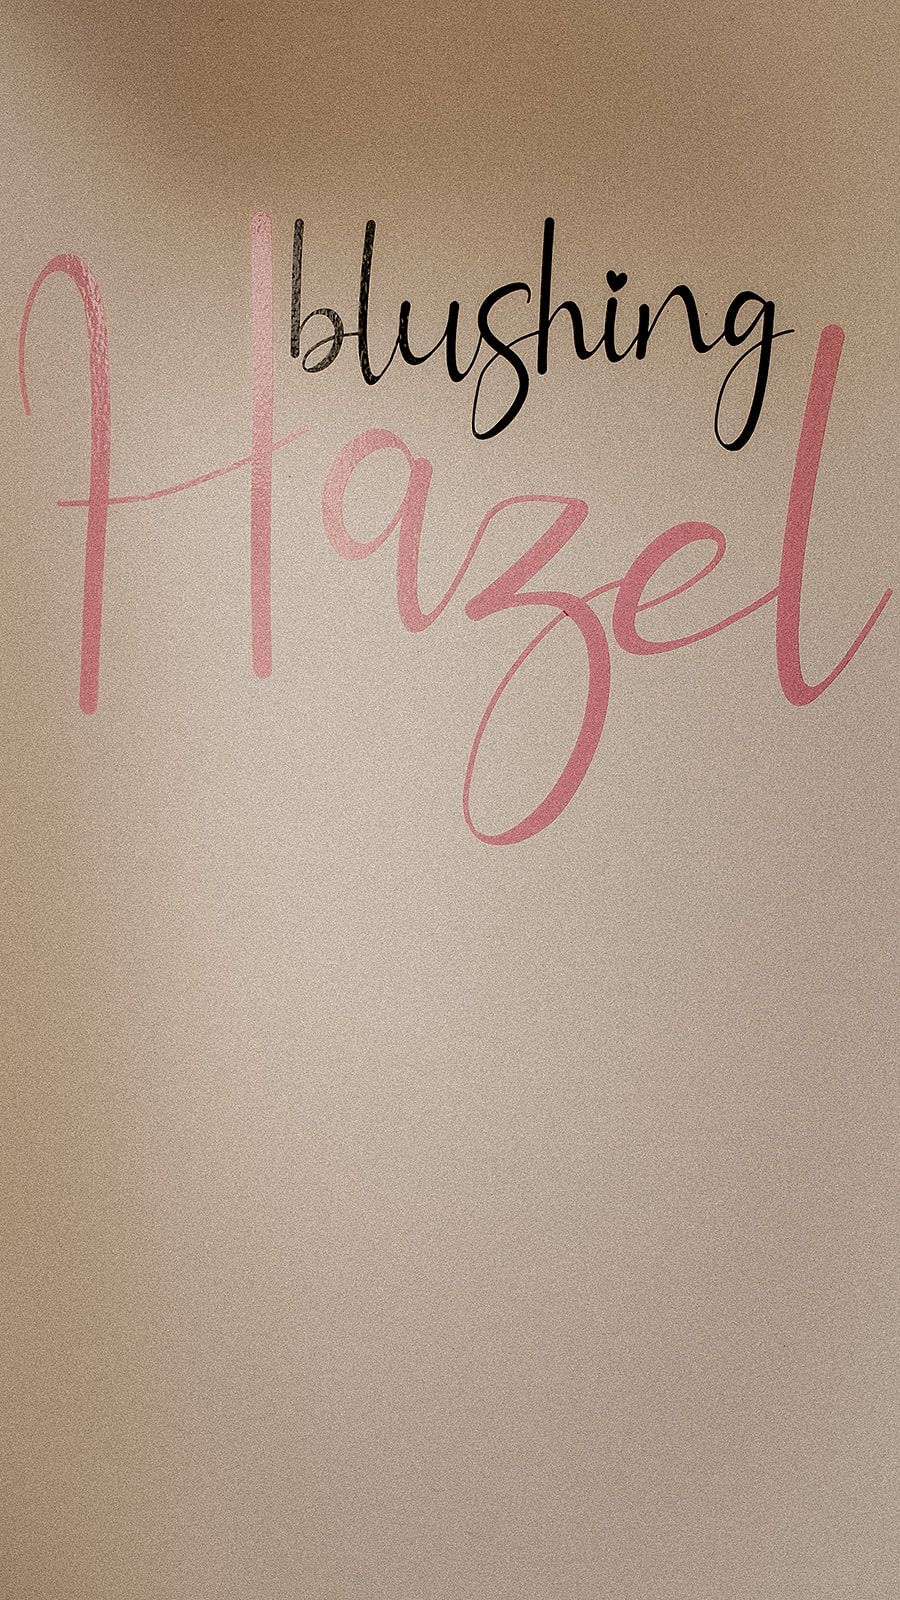 blushing
Hazel